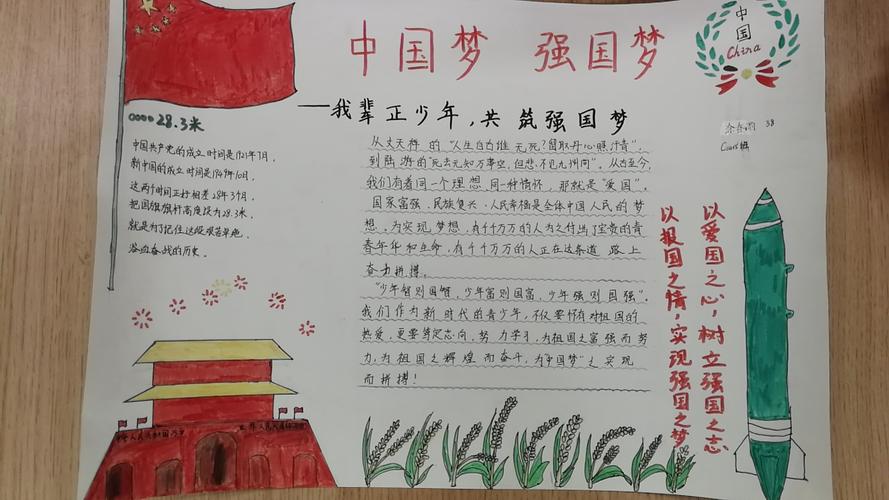 中国梦 强国梦
——我辈正少年，共筑强国梦
中国
China
38
28.3米
中国共产党的成立时间是1921年7月，
新中国的成立时间是1949年10月，
这两时间正好相差28年3个月，
把国旗旗杆高度设为28.3米，
就是为了记住这段艰苦卓绝，
浴血奋战的历史。
从文天祥的“人生自古谁无死？留取丹心照汗青”，
到陆游的“死去元知万事空，但悲不见九州同”。从古至今，
我们有着同一个理想，同一种情怀，那就是“爱国”。
国家富强、民族复兴、人民幸福是全体中国人民的梦
想。为实现梦想，有千千万万的人为之付出了宝贵的青
春年华和生命，有千千万万的人正在这条道路上
奋力拼搏。
“少年智则国智，少年富则国富，少年强则国强”。
我们作为新时代的青少年，不仅要怀有对祖国的
热爱，更要笃定志向，努力学习，为祖国之富强而努
力，为祖国之辉煌而奋斗，为“中国梦”之实现
而拼搏！
以爱国之心，树立强国之志
以报国之情，实现强国之梦